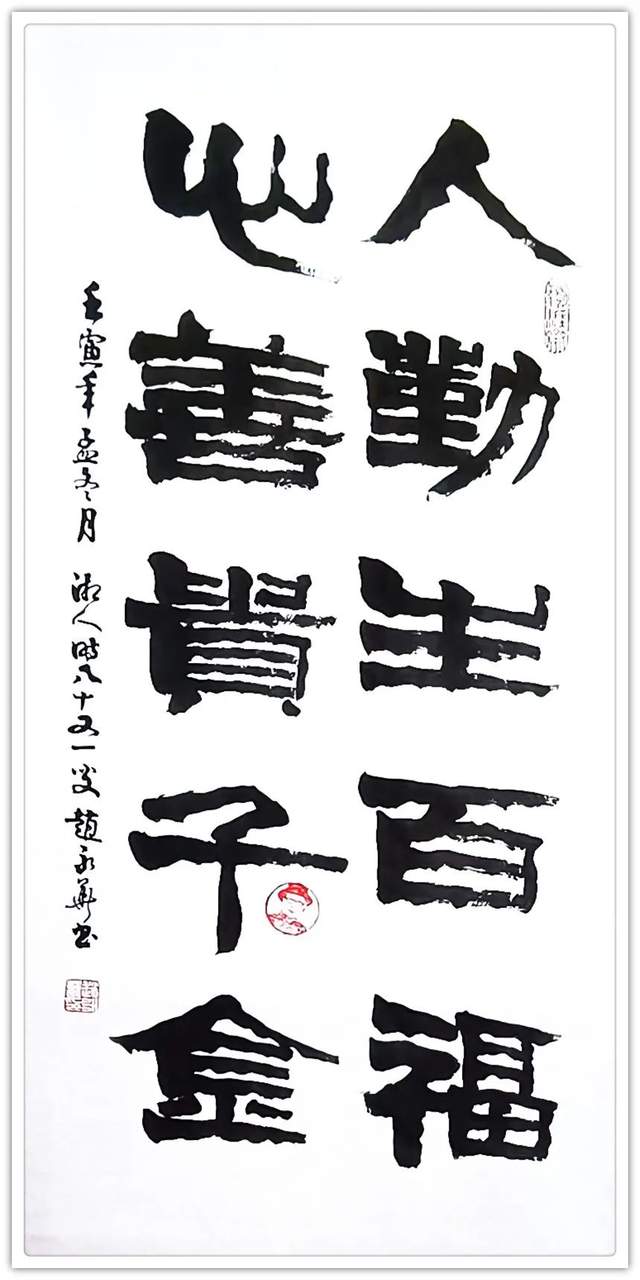 人勤生百福
心善贵千金
壬寅年孟冬月 湘人時八十又一叟趙永華书